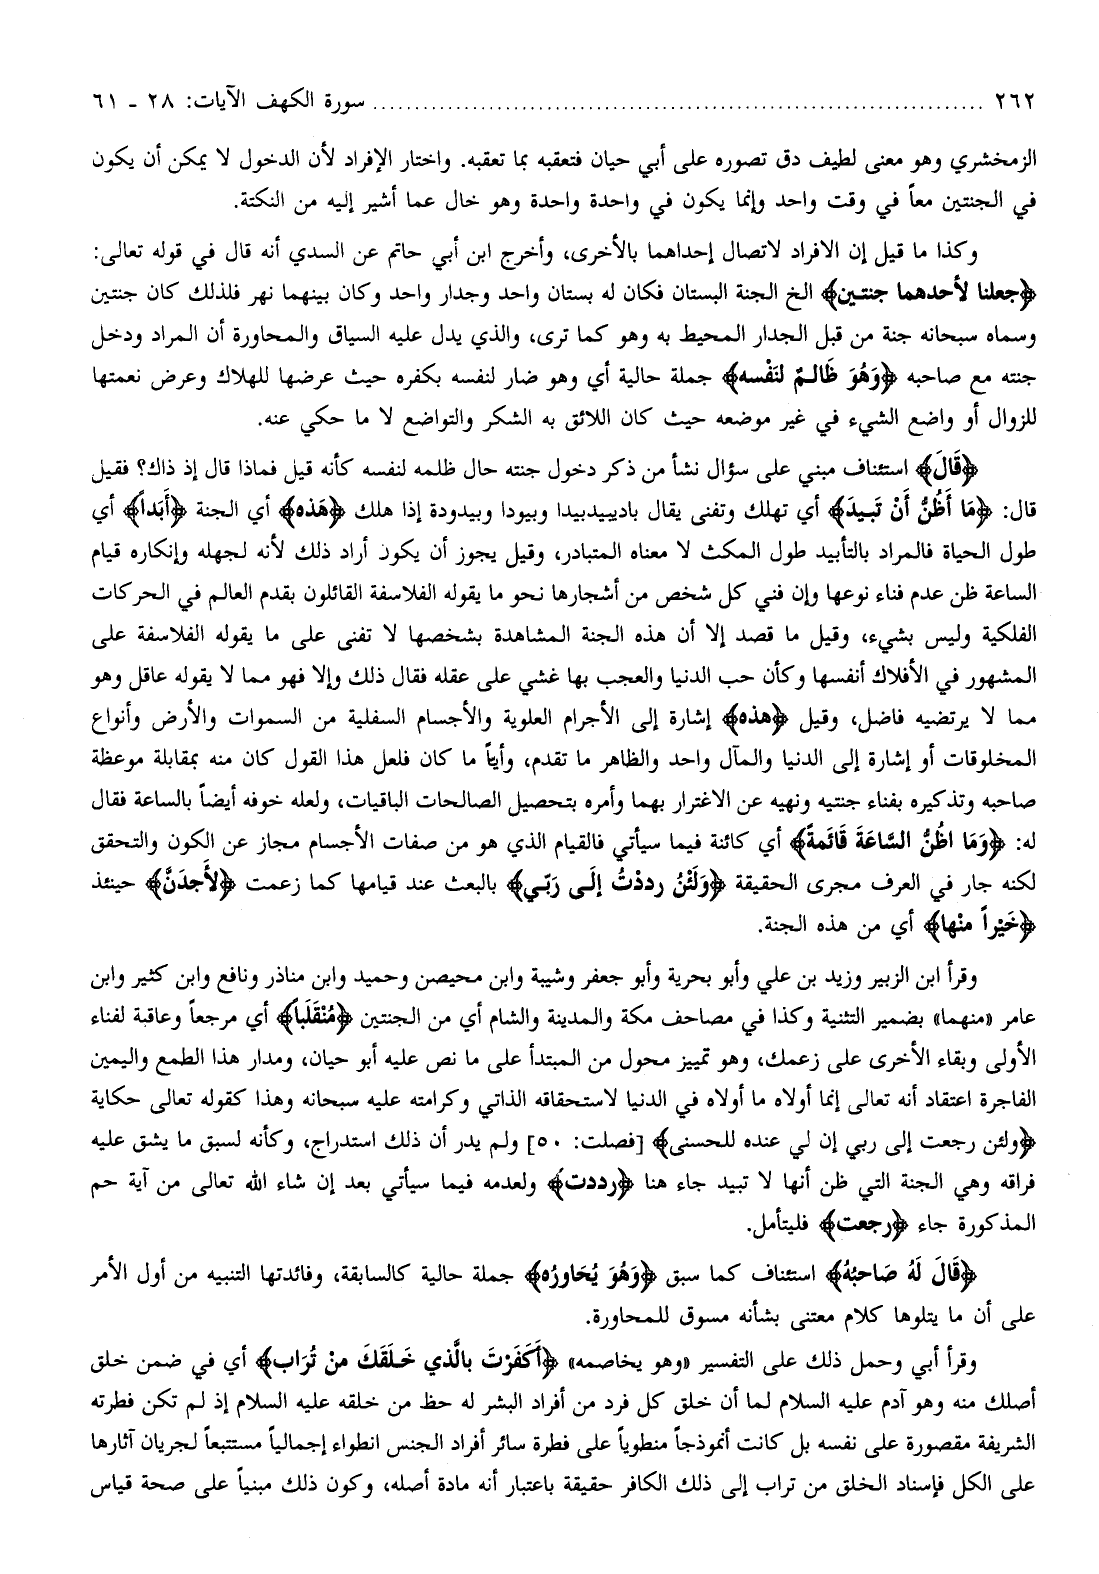 ٢٦٢ ........................................................................ سورة الكهف الآيات: ٢٨ ـ ٦١
الزمخشري وهو معنى لطيف دق تصوره على أبي حيان فتعقبه بما تعقبه. واختار الإفراد لأن الدخول لا يمكن أن يكون
في الجنتين معاً في وقت واحد وإنما يكون في واحدة واحدة وهو خال عما أشير إليه من النكتة.
وكذا ما قيل إن الافراد لاتصال إحداهما بالأخرى، وأخرج ابن أبي حاتم عن السدي أنه قال في قوله تعالى:
﴿جعلنا لأحدهما جنتين﴾ الخ الجنة البستان فكان له بستان واحد وجدار واحد وكان بينهما نهر فلذلك كان جنتين
وسماه سبحانه جنة من قبل الجدار المحيط به وهو كما ترى، والذي يدل عليه السياق والمحاورة أن المراد ودخل
جنته مع صاحبه ﴿وَهُوَ ظَالمٌ لنَفْسه﴾ جملة حالية أي وهو ضار لنفسه بكفره حيث عرضها للهلاك وعرض نعمتها
للزوال أو واضع الشيء في غير موضعه حيث كان اللائق به الشكر والتواضع لا ما حكي عنه.
﴿قَالَ﴾ استئناف مبني على سؤال نشأ من ذكر دخول جنته حال ظلمه لنفسه كأنه قيل فماذا قال إذ ذاك؟ فقيل
قال: ﴿مَا أَظُنُّ أَنْ تَبيدَ﴾ أي تهلك وتفنى يقال باديبيدبيدا وبيودا وبيدودة إذا هلك ﴿هَذه﴾ أي الجنة ﴿أَبَداً﴾ أي
طول الحياة فالمراد بالتأبيد طول المكث لا معناه المتبادر، وقيل يجوز أن يكون أراد ذلك لأنه لجهله وإنكاره قيام
الساعة ظن عدم فناء نوعها وإن فني كل شخص من أشجارها نحو ما يقوله الفلاسفة القائلون بقدم العالم في الحركات
الفلكية وليس بشيء، وقيل ما قصد إلا أن هذه الجنة المشاهدة بشخصها لا تفنى على ما يقوله الفلاسفة على
المشهور في الأفلاك أنفسها وكأن حب الدنيا والعجب بها غشي على عقله فقال ذلك وإلا فهو مما لا يقوله عاقل وهو
مما لا يرتضيه فاضل، وقيل ﴿هذه﴾ إشارة إلى الأجرام العلوية والأجسام السفلية من السموات والأرض وأنواع
المخلوقات أو إشارة إلى الدنيا والمآل واحد والظاهر ما تقدم، وأياً ما كان فلعل هذا القول كان منه بمقابلة موعظة
صاحبه وتذكيره بفناء جنتيه ونهيه عن الاغترار بهما وأمره بتحصيل الصالحات الباقيات، ولعله خوفه أيضاً بالساعة فقال
له: ﴿وَمَا اظُنُّ السَّاعَةَ قَائمةً﴾ أي كائنة فيما سيأتي فالقيام الذي هو من صفات الأجسام مجاز عن الكون والتحقق
لكنه جار في العرف مجرى الحقيقة ﴿وَلَئنُ رددْتُ إلَى رَبّي﴾ بالبعث عند قيامها كما زعمت ﴿لأَجدَنَّ﴾ حينئذ
﴿خَيْراً منْها﴾ أي من هذه الجنة.
وقرأ ابن الزبير وزيد بن علي وأبو بحرية وأبو جعفر وشيبة وابن محيصن وحميد وابن مناذر ونافع وابن كثير وابن
عامر «منهما» بضمير التثنية وكذا في مصاحف مكة والمدينة والشام أي من الجنتين ﴿مُنْقَلَباً﴾ أي مرجعاً وعاقبة لفناء
الأولى وبقاء الأخرى على زعمك، وهو تمييز محول من المبتدأ على ما نص عليه أبو حيان، ومدار هذا الطمع واليمين
الفاجرة اعتقاد أنه تعالى إنما أولاه ما أولاه في الدنيا لاستحقاقه الذاتي وكرامته عليه سبحانه وهذا كقوله تعالى حكاية
﴿ولئن رجعت إلى ربي إن لي عنده للحسنى﴾ [فصلت: ٥٠] ولم يدر أن ذلك استدراج، وكأنه لسبق ما يشق عليه
فراقه وهي الجنة التي ظن أنها لا تبيد جاء هنا ﴿رددت﴾ ولعدمه فيما سيأتي بعد إن شاء الله تعالى من آية حم
المذكورة جاء ﴿رجعت﴾ فليتأمل.
﴿قَالَ لَهُ صَاحبُهُ﴾ استئناف كما سبق ﴿وَهُوَ يُحَاورُه﴾ جملة حالية كالسابقة، وفائدتها التنبيه من أول الأمر
على أن ما يتلوها كلام معتنى بشأنه مسوق للمحاورة.
وقرأ أبي وحمل ذلك على التفسير «وهو يخاصمه» ﴿أَكَفَرْتَ بالَّذي خَلَقَكَ منْ تُرَاب﴾ أي في ضمن خلق
أصلك منه وهو آدم عليه السلام لما أن خلق كل فرد من أفراد البشر له حظ من خلقه عليه السلام إذ لم تكن فطرته
الشريفة مقصورة على نفسه بل كانت أنموذجاً منطوياً على فطرة سائر أفراد الجنس انطواء إجمالياً مستتبعاً لجريان آثارها
على الكل فإسناد الخلق من تراب إلى ذلك الكافر حقيقة باعتبار أنه مادة أصله، وكون ذلك مبنياً على صحة قياس